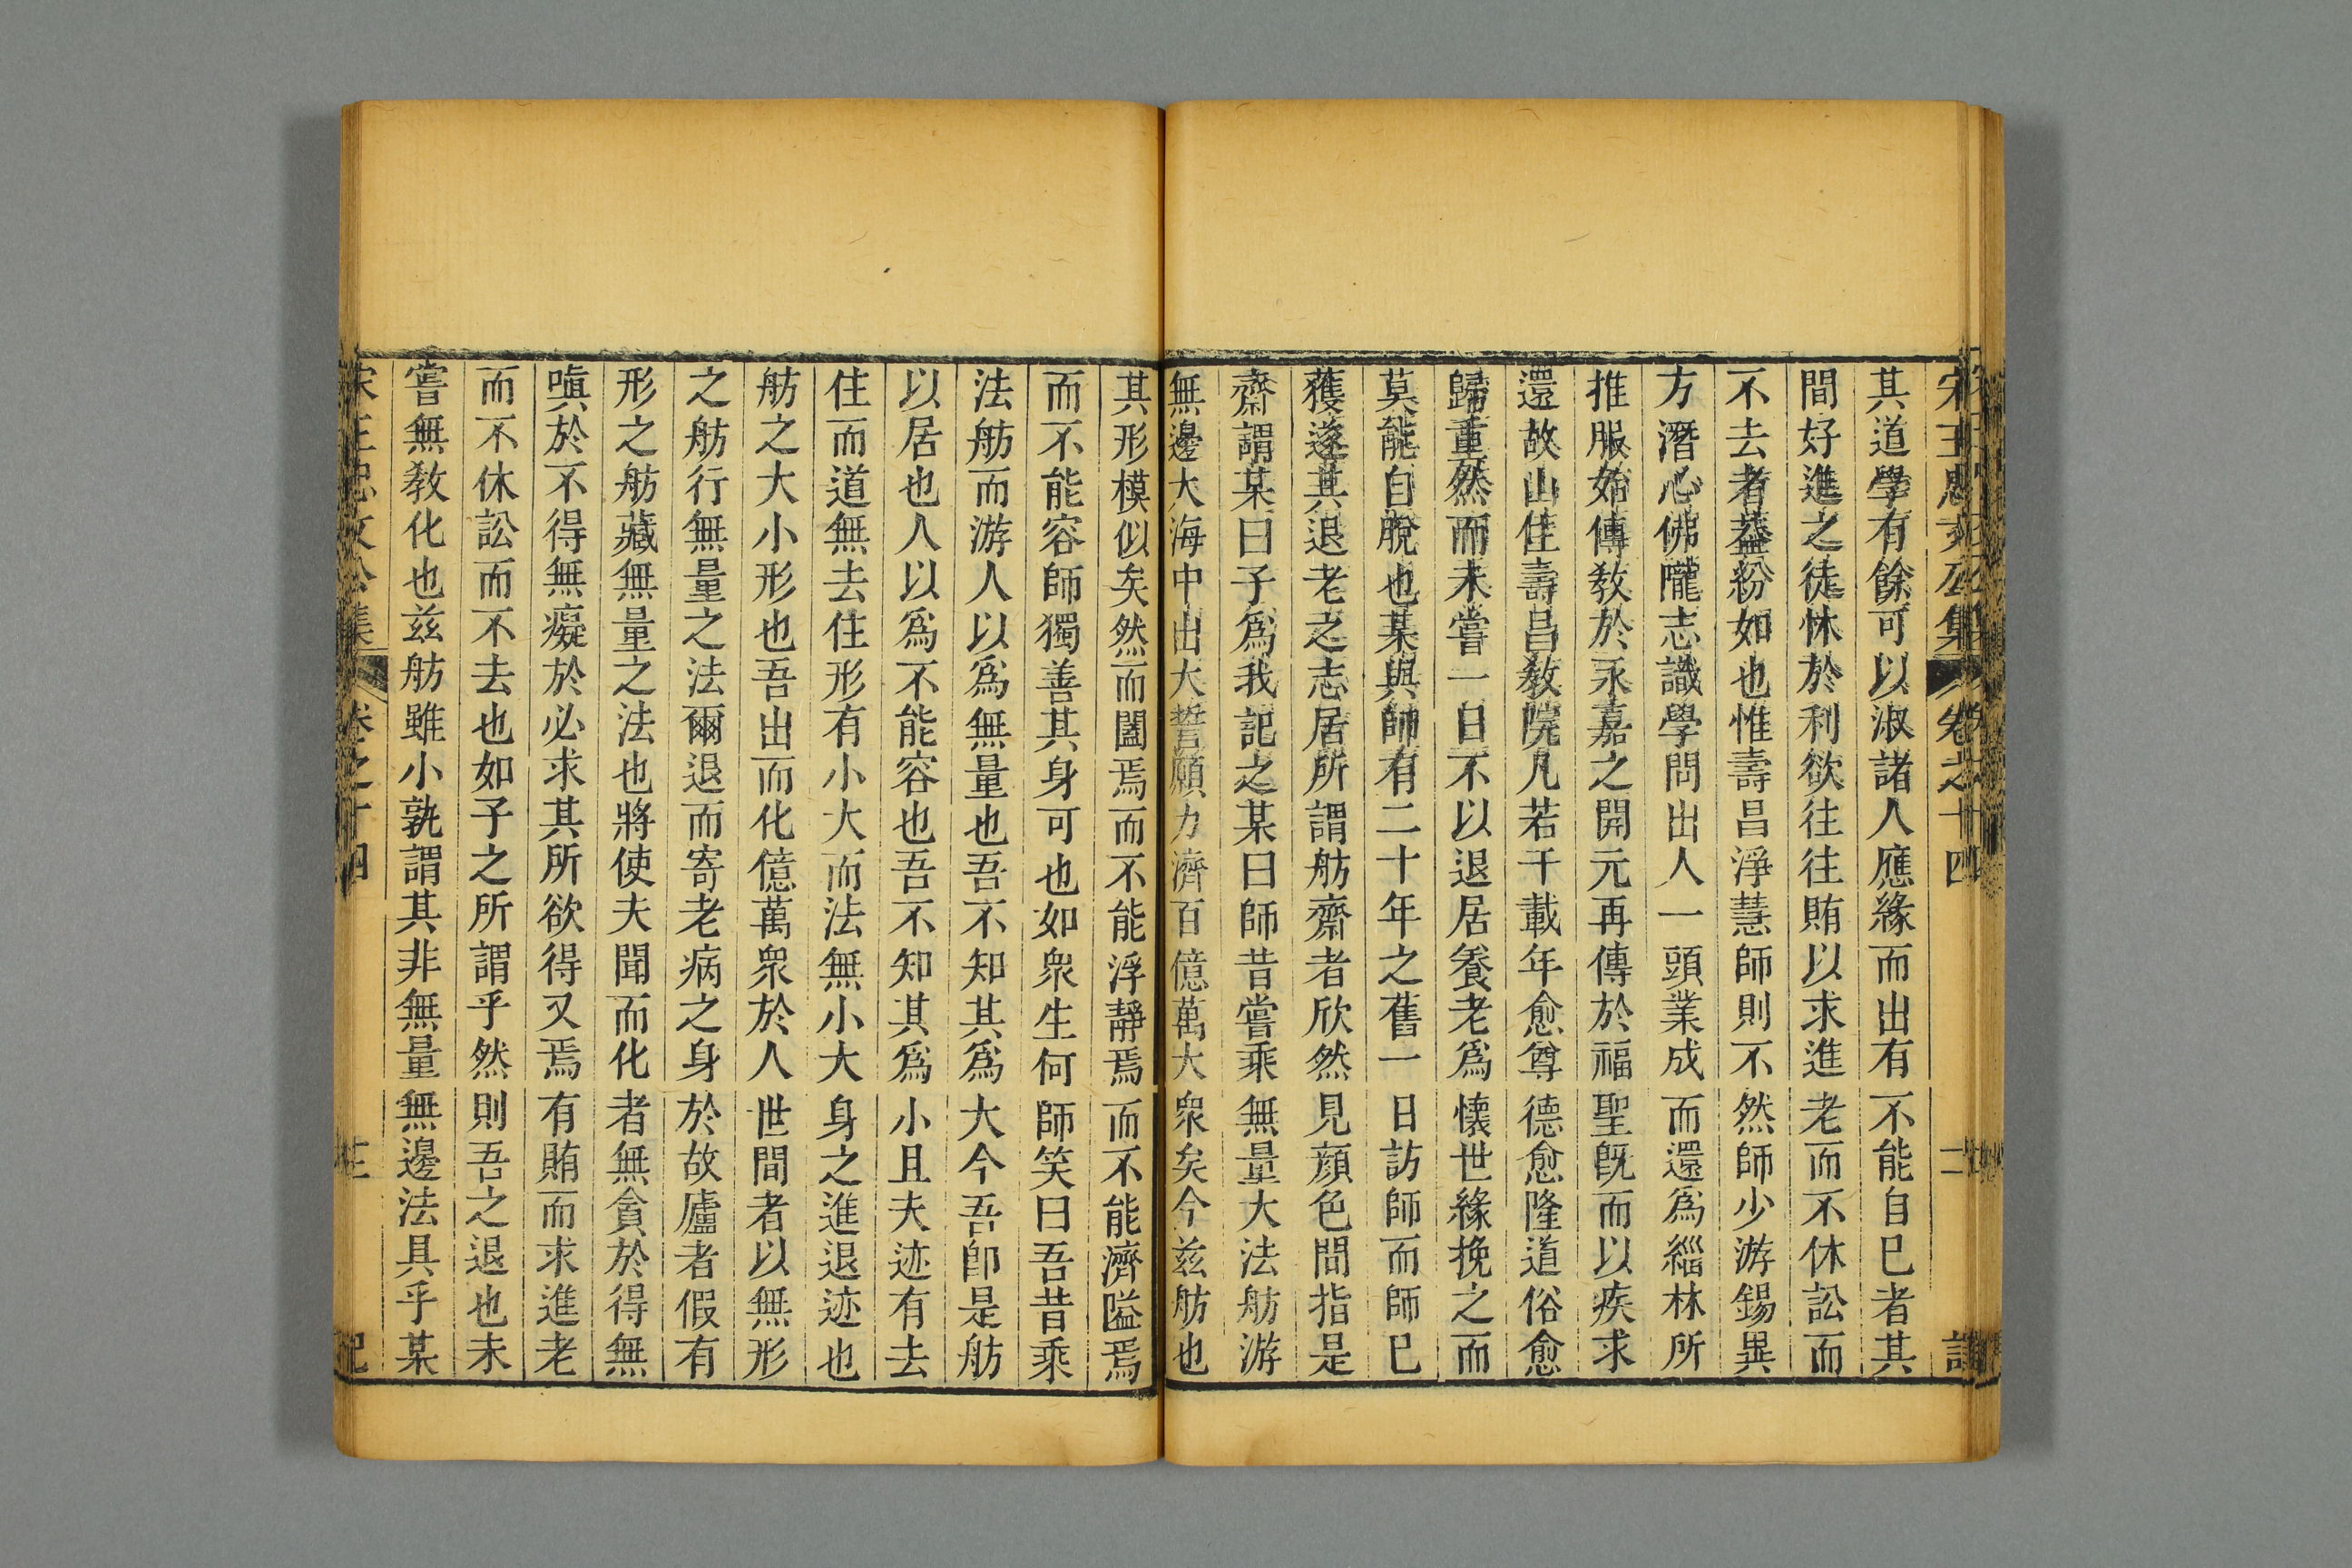 宋王忠文公集 卷之十四 二 記
其道學有餘可以淑諸人應緣而出有不能自已者其
間好進之徒怵於利欲往往賄以求進老而不休訟而
不去者葢紛如也惟壽昌淨慧師則不然師少游錫異
方潛心佛隴志識學問出人一頭業成而還爲緇林所
推服始傳敎於永嘉之開元再傳於福聖旣而以疾求
還故山住壽昌敎院凡若干載年愈尊德愈隆道俗愈
歸重然而未嘗一日不以退居養老爲懷世緣挽之而
莫能自脫也某與師有二十年之舊一日訪師而師已
獲遂其退老之志居所謂舫齋者欣然見顏色間指是
齋謂某曰子爲我記之某曰師昔嘗乘無量大法舫游
無邊大海中出大誓願力濟百億萬大衆矣今兹舫也
其形模似矣然而闔焉而不能浮靜焉而不能濟隘焉
而不能容師獨善其身可也如衆生何師笑曰吾昔乘
法舫而游人以爲無量也吾不知其爲大今吾卽是舫
以居也人以爲不能容也吾不知其爲小且夫迹有去
住而道無去住形有小大而法無小大身之進退迹也
舫之大小形也吾出而化億萬衆於人世間者以無形
之舫行無量之法爾退而寄老病之身於故廬者假有
形之舫藏無量之法也將使夫聞而化者無貪於得無
嗔於不得無癡於必求其所欲得又焉有賄而求進老
而不休訟而不去也如子之所謂乎然則吾之退也未
嘗無敎化也兹舫雖小孰謂其非無量無邊法具乎某
宋王忠文公集 卷之十四 三 記